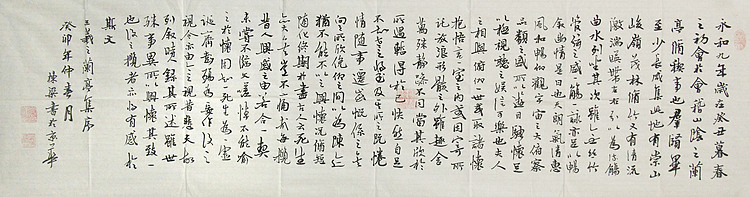 永和九年歲在癸丑暮春
之初會於會稽山陰之蘭
亭脩禊事也群賢畢
至少長咸集此地有崇山
峻嶺茂林脩竹又有清流
激湍暎帶左右引以為流觴
曲水列坐其次雖無絲竹
管絃之盛一觴一詠亦足以暢
敘幽情是日也天朗氣清惠
風和暢仰觀宇宙之大俯察
品類之盛所以遊目騁懷足
以極視聽之娛信可樂也夫人
之相與俯仰一世或取諸懷
抱悟言一室之內或因寄所
託放浪形骸之外雖趣舍
萬殊靜躁不同當其欣於
所遇輒得於己快然自足
不知老之將至及其所之既惓
情隨事遷感慨係之矣
向之所欣俛仰之間以為陳迹
猶不能不以之興懷況脩短
隨化終期於盡古人云死生
亦大矣豈不痛哉每攬
昔人興感之由若合一契
未嘗不臨文嗟悼不能喻
之於懷固知一死生為虛
誕齊彭殤為妄作後之
視今亦由今之視昔悲夫故
列敘時人錄其所述雖世
殊事異所以興懷其致一
也後之攬者亦將有感於
斯文
王羲之蘭亭集序
癸卯年仲春月
陳梁書於京華